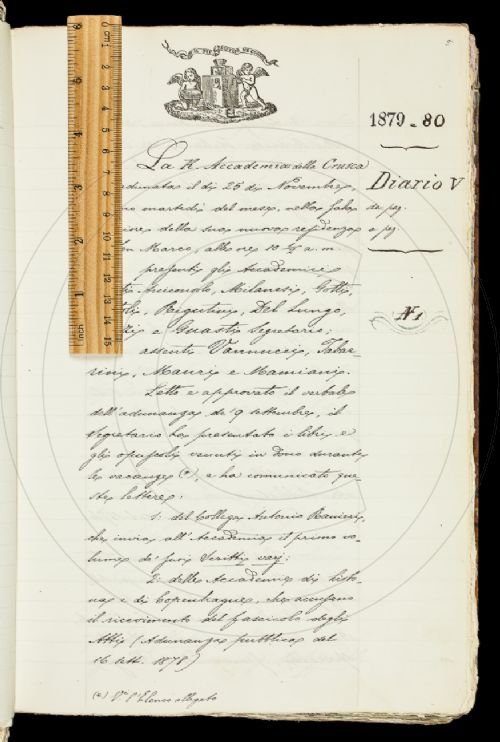 5
1879-80
Diario V
da pag.
a pag.
N. 1
La R. Accademia della Crusca
adunatasi il dì 25 di Novembre,
martedì del mese, nella sala
della sua nuova residenza
Marco, alle ore 10 ½ a. m.
presenti gli Accademici
Milanesi, Gotti,
Rigutini, Del Lungo,
e Guasti Segretario;
assenti Vannucci, Tabar-
rini, Mauri e Mamiani.
Letto e approvato il verbale
dell'adunanza de' 9 settembre, il
Segretario ha presentato i libri e
gli opuscoli venuti in dono durante
le vacanze (*), e ha comunicato que-
ste lettere:
1: del Collega Antonio Ranieri,
che invia all'Accademia il primo vo-
lume de' suoi Scritti varj;
2: delle Accademie di Lisbo-
na e di Copenhague, che accusano
il ricevimento del fascicolo degli
Atti (Adunanza pubblica del
16 sett. 1878)
(*) V. l'Elenco allegato